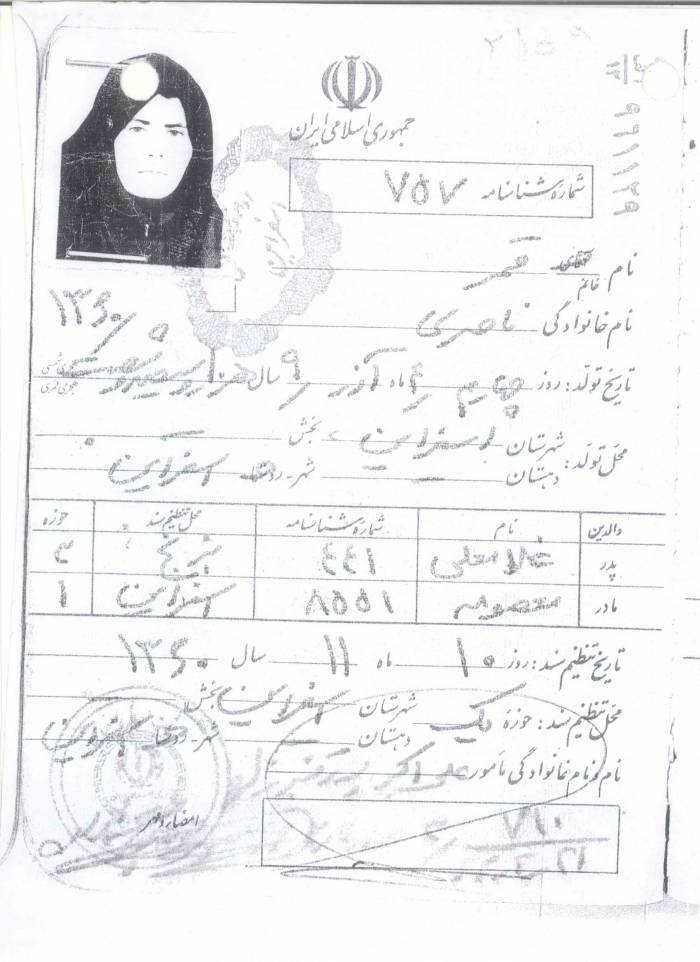 جمهوری اسلامی ایران
شماره شناسنامه ۷۵۷
نام آقای خانم قمر
نام خانوادگی ناصری
۱۳۶۰/۹/
تاریخ تولد: روز چهارم ۴ ماه آذر ۹ سال هزار و سیصد و شصت هجری شمسی هجری قمری
محل تولد: شهرستان اسفراین بخش
دهستان شهر - روستا اسفراین
والدین نام شماره شناسنامه محل تنظیم سند حوزه
پدر غلامعلی ۴۴۱ ۳
مادر معصومه ۸۵۵۱ اسفراین ۱
تاریخ تنظیم سند: روز ۱۰ ماه ۱۱ سال ۱۳۶۰
محل تنظیم سند: حوزه یک شهرستان اسفراین بخش
دهستان شهر - روستا اسفراین
نام و نام خانوادگی مأمور علی اکبر
امضاء و مهر